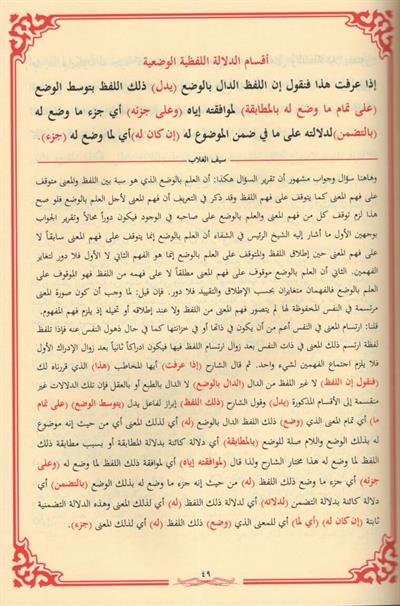 أقسام الدلالة اللفظية الوضعية
إذا عرفت هذا فنقول إن اللفظ الدال بالوضع (يدل) ذلك اللفظ بتوسط الوضع
(على تمام ما وضع له بالمطابقة) لموافقته إياه (وعلى جزئه) أي جزء ما وضع له
(بالتضمن) لدلالته على ما في ضمن الموضوع له (إن كان له) أي لما وضع له (جزء).
سيف الغلاب
وهاهنا سؤال وجواب مشهور أن تقرير السؤال هكذا: أن العلم بالوضع الذي هو سبة بين اللفظ والمعنى متوقف
على فهم المعنى كما يتوقف على فهم اللفظ وقد ذكر في التعريف أن فهم المعنى لأجل العلم بالوضع فلو صح
هذا لزم توقف كل من فهم المعنى والعلم بالوضع على صاحبه في الوجود فيكون دوراً محالاً وتقرير الجواب
بوجهين الأول ما أشار إليه الشيخ الرئيس في الشفاء أن العلم بالوضع إنما يتوقف على فهم المعنى سابقاً لا
على فهم المعنى حين إطلاق اللفظ والمتوقف على العلم بالوضع إنما هو الفهم الثاني لا الأول فلا دور لتغاير
الفهمين. الثاني أن العلم بالوضع موقوف على فهم المعنى مطلقاً لا على فهمه من اللفظ فهو الموقوف على
العلم بالوضع فالفهمان متغايران بحسب الإطلاق والتقييد فلا دور. فإن قيل: لما وجب أن كون صورة المعنى
مرتسمة في النفس المحفوظة لها لم يتصور فهم المعنى من اللفظ ولا عند إطلاقه أو تخيله إذ يلزم فهم المفهوم.
قلنا: ارتسام المعنى في النفس أعم من أن يكون في ذاتها أو في خزانتها كما في حال ذهول النفس عنه فإذا تلفظ
لفظة ارتسم ذلك المعنى في ذات النفس بعد زوال ارتسام اللفظ فيها فيكون ادراكاً ثانياً بعد زوال الإدراك الأول
فلا يلزم اجتماع الفهمين لشيء واحد. ثم قال الشارح (إذا عرفت) أيها المخاطب (هذا) الذي قررناه لك
(فنقول إن اللفظ) لا غير اللفظ من الدال (الدال بالوضع) لا الدال بالطبع أو بالعقل فإن تلك الدلالات غير
منقسمة إلى الأقسام المذكورة (يدل) وقول الشارح (ذلك اللفظ) إبراز لفاعل يدل (بتوسط الوضع) (على تمام
ما) أي تمام المعنى الذي (وضع) ذلك اللفظ الدال بالوضع (له) أي لذلك المعنى أي من حيث إنه موضوع
له بذلك الوضع واللام صلة للوضع (بالمطابقة) أي دلالة كائنة بدلالة المطابقة أو بسبب مطابقة ذلك
اللفظ لما وضع له هذا مختار الشارح ولذا قال (لموافقته إياه) أي لموافقة ذلك اللفظ لما وضع له (وعلى
جزئه) أي جزء ما وضع ذلك اللفظ (له) من حيث إنه جزء ما وضع له بذلك الوضع (بالتضمن) أي
دلالة كائنة بدلالة التضمن (لدلالته) أي لدلالة ذلك اللفظ (له) أي لذلك المعنى وهذه الدلالة التضمنية
ثابتة (إن كان له) (أي لما) أي للمعنى الذي (وضع) ذلك اللفظ (له) أي لذلك المعنى (جزء).
٤٩